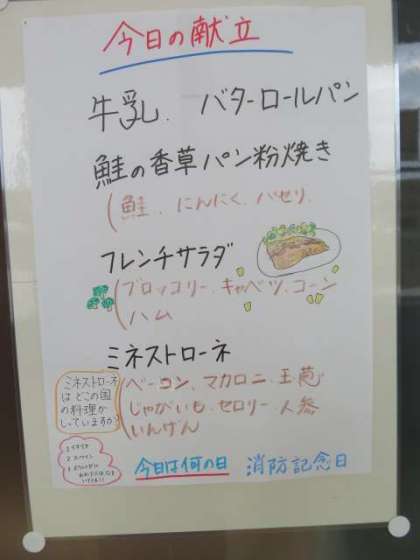 今日の献立
牛乳、バターロールパン
鮭の香草パン粉焼き
(鮭、にんにく、パセリ、
フレンチサラダ
(ブロッコリー、キャベツ、コーン
ハム
ミネストローネ
(ベーコン、マカロニ、玉葱
じゃがいも、セロリー、人参
いんげん
ミネストローネ
はどこの国
の料理か
しっていますか?
1 イタリア
2 スペイン
今日は何の日 消防記念日